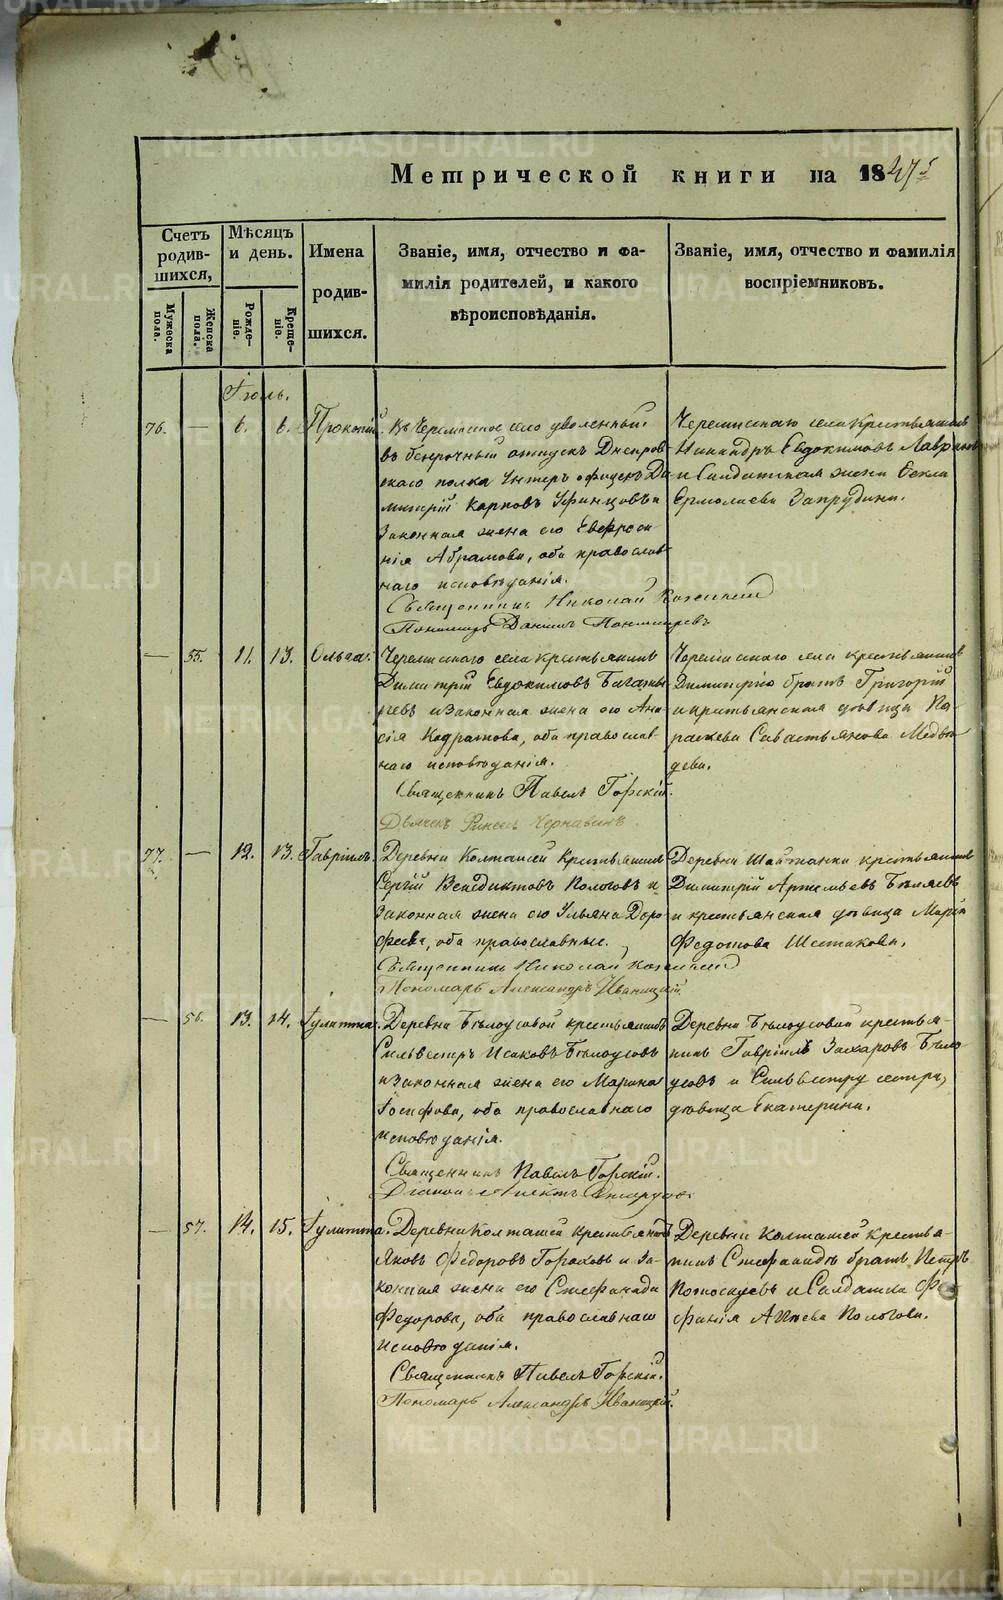 Метрической книги на 1847 г
Счетъ родив-шихся,
Мѣсяцъ и день.
Имена родив-шихся.
Званіе, имя, отчество и фа-
милія родителей, и какого
вѣроисповѣданія.
Званіе, имя, отчество и фамилія
воспріемниковъ.
Мужеска пола.
Женска пола.
Рожде-ніе.
Креще-ніе.
Іюль.
76. — 6. 6. Прокопій.
Въ Черемисское село уволенный
въ безсрочный отпускъ Днепров
скаго полка Унтеръ офицеръ Ди
митрій Карповъ и
Законная жена его Евфроси-
нія Абрамова, оба православ-
наго исповѣданія.
Священникъ Николай
Пономарь Даніилъ
Черемисскаго села крестьянинъ
Никандръ Евдокимовъ
и Солдатская жена Фекла
Ермолаева Запрудина.
— 55. 11. 13. Ольга.
Черемисскаго села крестьянинъ
Димитрій Евдокимовъ Багаты
ревъ и Законная жена его Ана
сія Кодратова, оба православ
наго исповѣданія.
Священникъ Павелъ Горскій.
Дьячекъ Чернавинъ.
Черемисскаго села крестьянинъ
Димитрію братъ Григорій
и крестьянская дѣвица Па-
раскева Савастьянова Медвѣ
дева.
77. — 12. 13. Гавріилъ.
Деревни Колташей Крестьянинъ
Сергій Венедиктовъ Пологовъ и
Законная жена его Ульяна Доро
феева, оба православные.
Священникъ Николай
Пономарь Александръ Иваницкій.
Деревни Шайтанки крестьянинъ
Димитрій Артемьевъ Бѣляевъ
и крестьянская дѣвица Марія
Федотова Шестакова.
— 56. 13. 14. Іулитта.
Деревни Бѣлоусовой крестьянинъ
Сильвестръ Исаковъ Бѣлоусовъ
и Законная жена его Марина
Іосифова, оба православнаго
исповѣданія.
Священникъ Павелъ Горскій.
Діаконъ
Деревни Бѣлоусовой крестья-
нинъ Гавріилъ Захаровъ Бѣло
усовъ и Сильвестру сестра,
дѣвица Екатерина.
— 57. 14. 15. Іулитта.
Деревни Колташей крестьянинъ
Яковъ Федоровъ Гораховъ и За-
конная жена его Стефанида
Федорова, оба православнаго
исповѣданія.
Священникъ Павелъ Горскій.
Пономарь Александръ Иваницкій.
Деревни Колташей крестья-
нинъ Стефанидѣ братъ Петръ
Потоскуевъ и Солдатка
Пологова.
METRIKI.GASO-URAL.RU